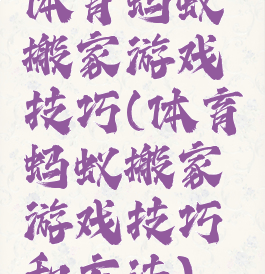 体育蚂蚁
搬家游戏
技巧(体育
蚂蚁搬家
游戏技巧
和方法)